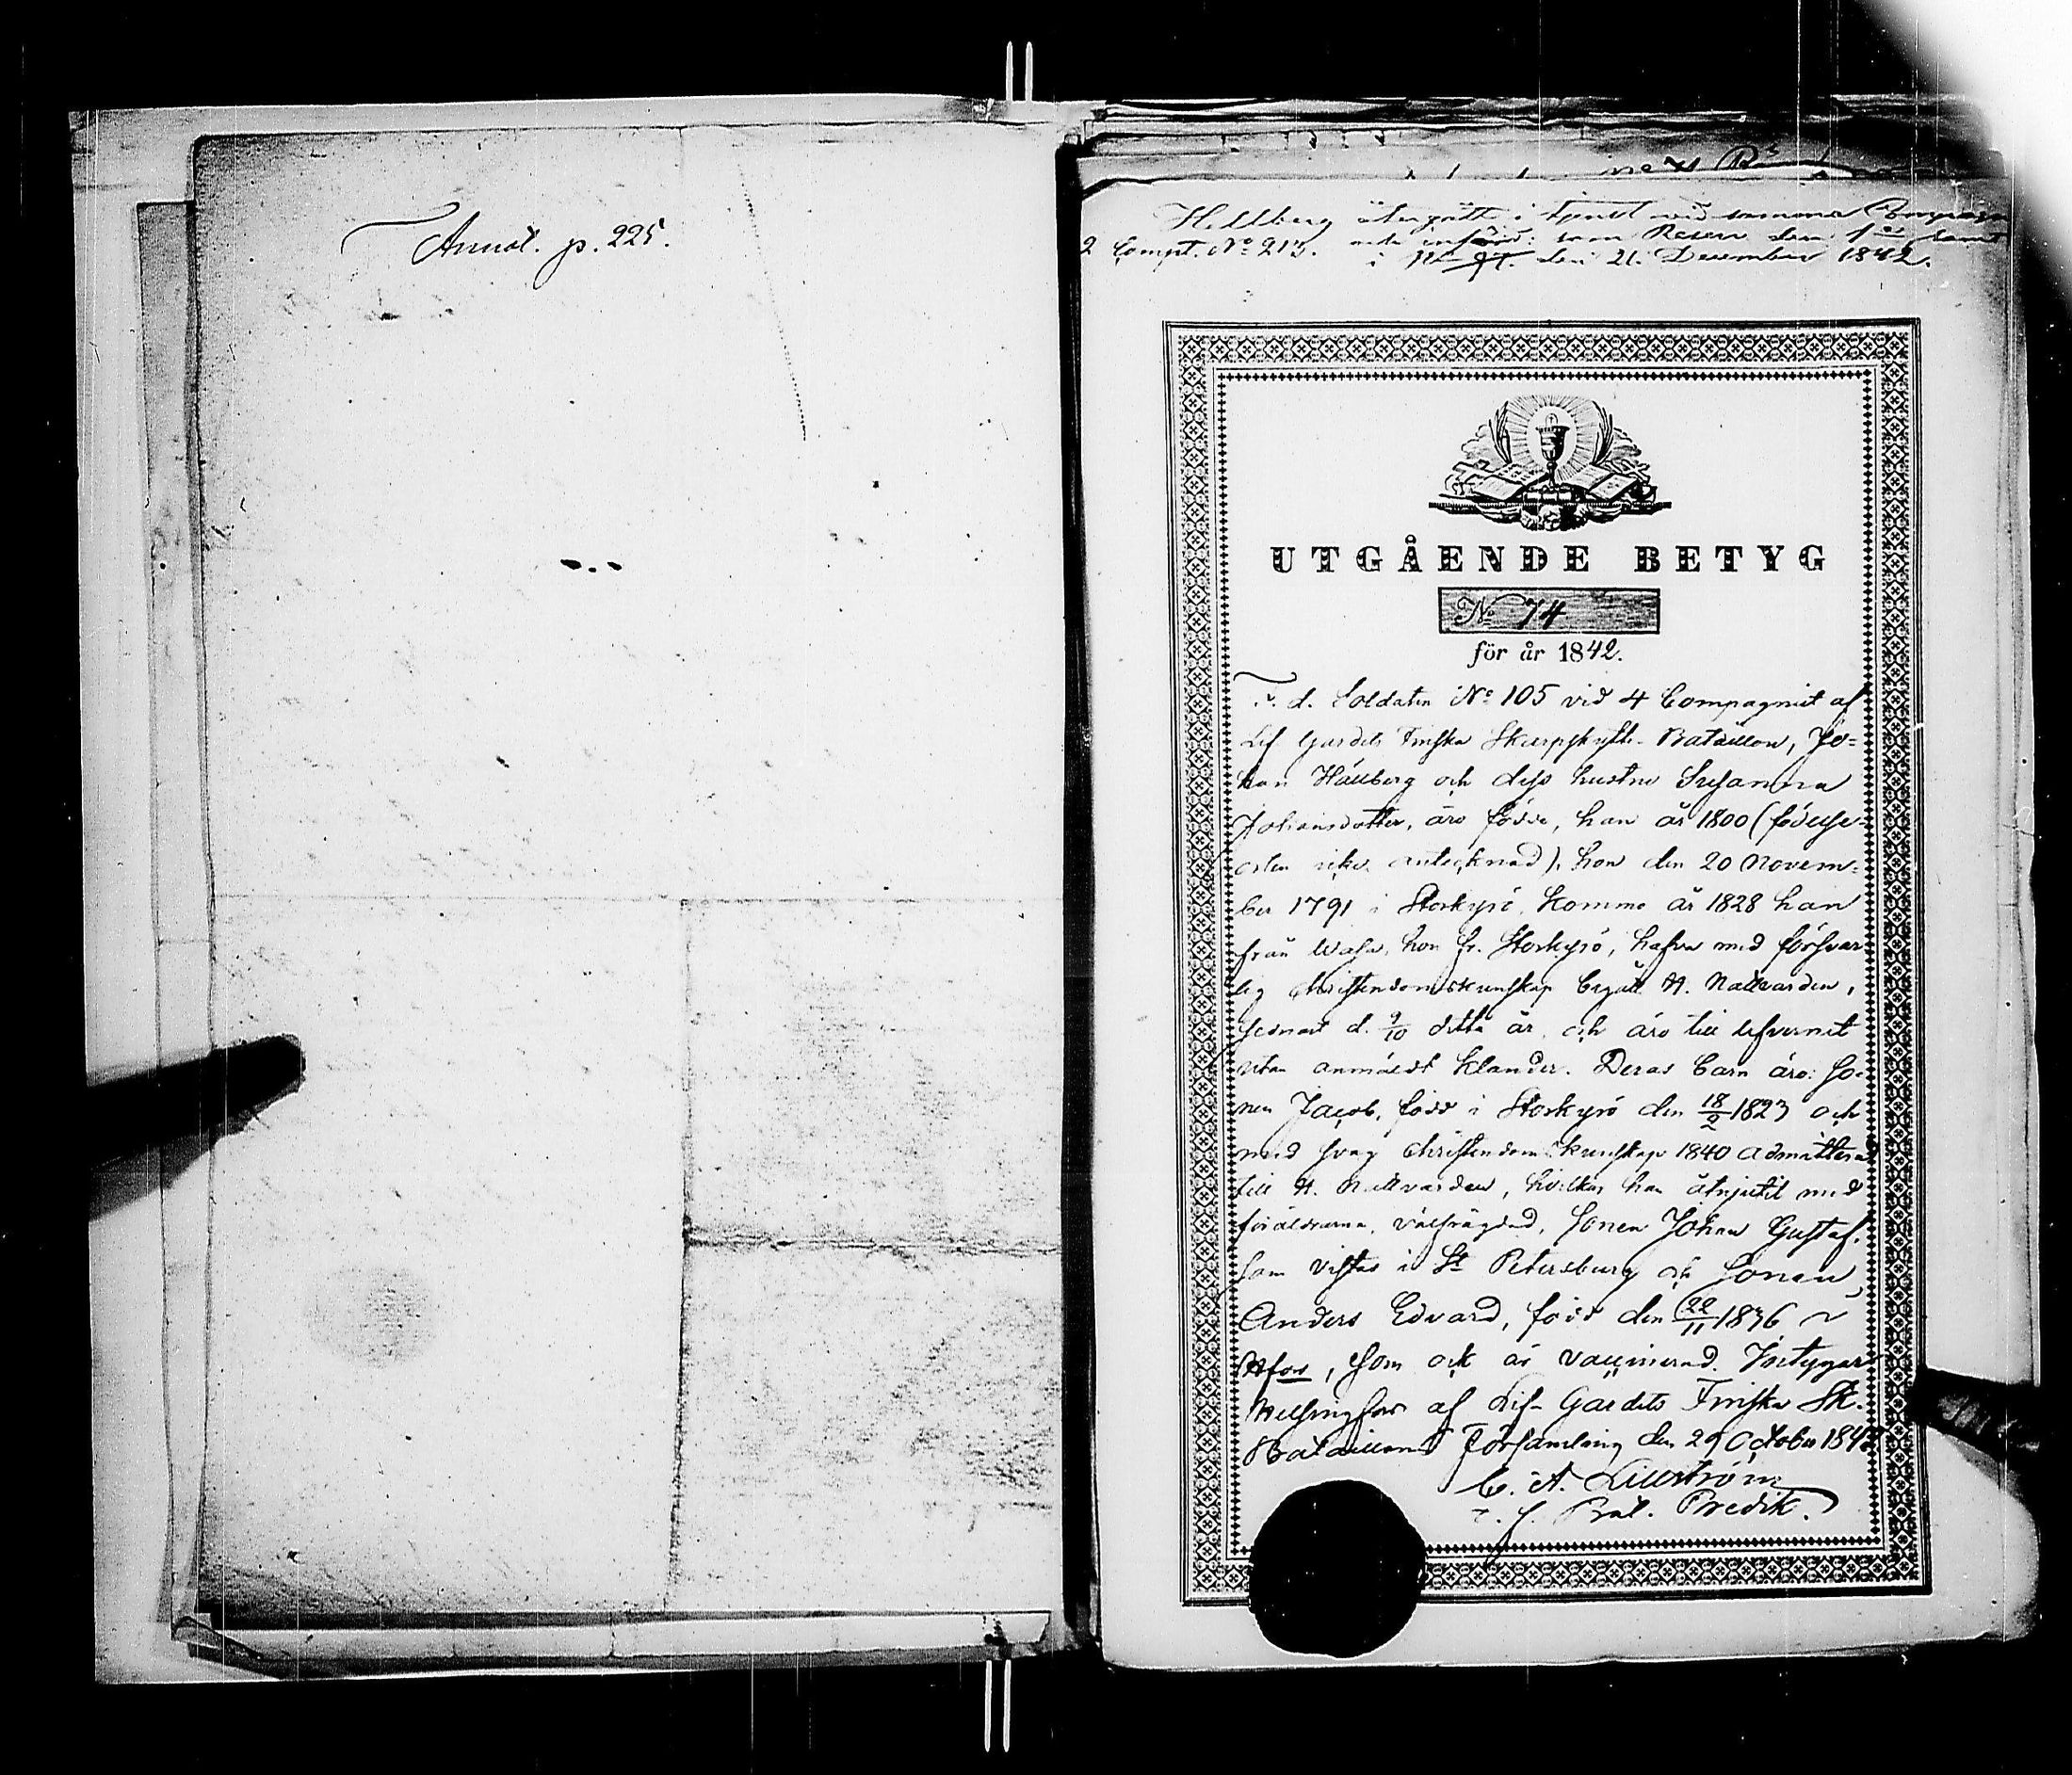 Annot. p. 225.
Hellberg återgått i tjenst vid samma Compagn
2 Compt. No 213. och införd: som Reserv den 1 samt
i No 97. den 21. December 1842.
UTGÅENDE BETYG
No 74
för år 1842.
F. d. Soldaten No 105 vid 4 Compagniet af
Lif Gardets Finska Skarpskytte-Bataillon, Jo=
han Hällberg och dess hustru Susanna
Johansdotter, äro födde, han år 1800 (födelse-
orten icke antecknad), hon den 20 Novem=
ber 1791 i Storkyrö. Komme år 1828 han
från Wasa, hon fr. Storkyrö, hafva med försvar
lig Christendomskunskap begått H. Nattvarden,
sednast d. 9/10 detta år, och äro till lefvernet
utan anmäldt klander. Deras barn äro: So-
nen Jacob, född i Storkyrö den 18/2 1823 och
med svag Christendomskunskap 1840 admitterad
till H. Nattvarden, hvilken han åtnjutit med
föräldrarna, välfrägdad, Sonen Johan Gustaf,
som vistas i St Petersburg och Sonen
Anders Edvard, född den 22/11 1836 i
Hfors, som ock är vaccinerad. Intygar
Helsingfors af Lif-Gardets Finska Sk.
Bataillons Församling den 29 October 1842
C. A. Lillström
t. f. Bat. Predik.